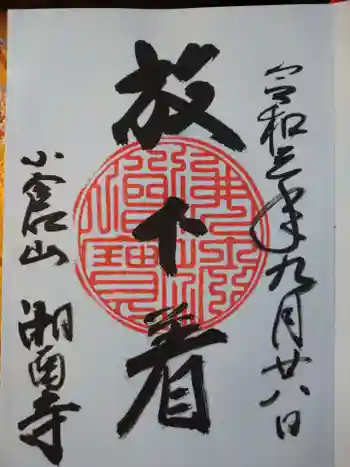 令和三年九月廿八日
放下着
小倉山 湘南寺
佛法僧寳